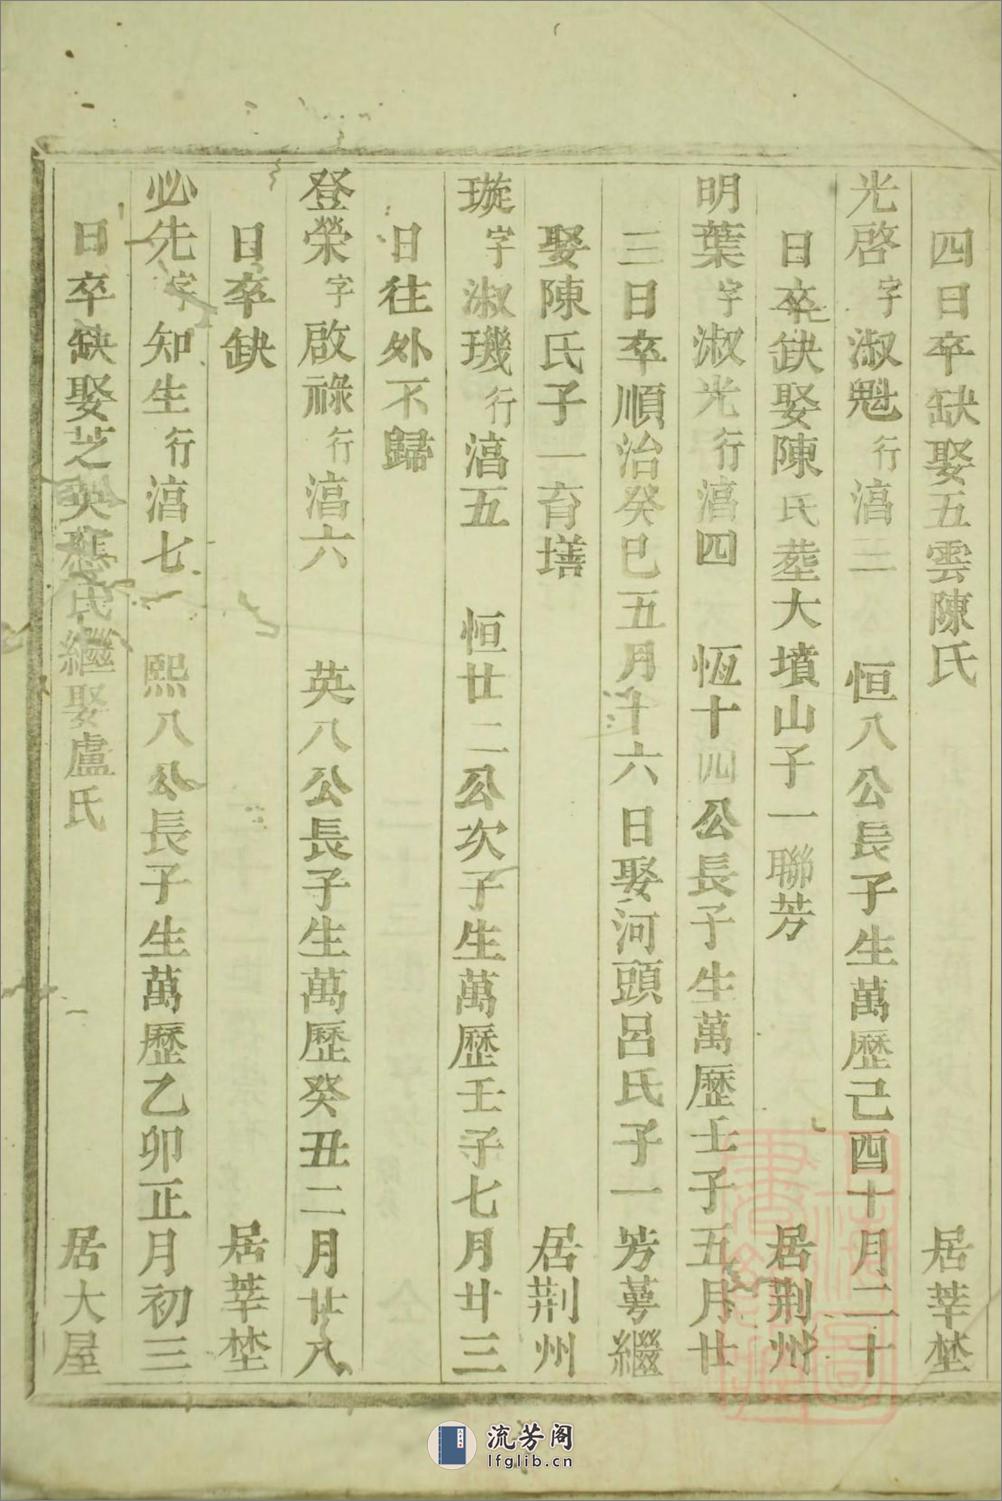 四日卒缺娶五雲陳氏 居莘埜
光啓字淑魁行湻三 恒八公長子生萬歷己酉十月二十
日卒缺娶陳氏葬大墳山子一聯芳 居荆州
明葉字淑光行湻四 恆十四公長子生萬歷壬子五月廿
三日卒順治癸巳五月十六日娶河頭呂氏子一芳蕚繼
娶陳氏子一育墡 居荆州
璇字淑璣行湻五 恒廿二公次子生萬歷壬子七月廿三
日往外不歸
登榮字啟祿行湻六 英八公長子生萬歷癸丑二月廿八
日卒缺 居莘埜
必先字知生行湻七 熙八公長子生萬歷乙卯正月初三
日卒缺娶芝英應氏繼娶盧氏 居大屋
流芳阁
lfglib.cn